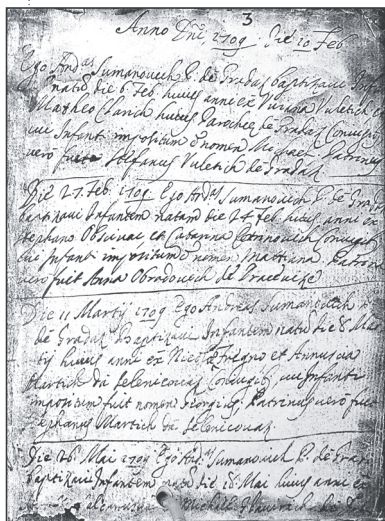 3
Anno Dni, 1709. Die 10 Feb
Ego And.as Sumanovich P. de Gradaz baptizavi Infan
natū die 6 Feb huius anni ex Vuletich
Mattheo huius Parochiæ de Gradaz Coniugib
cui Infanti impositum ē nomen Patrinus
vero fuit Stefanus Vuletich de Gradaz
Die 27. Feb. 1709. Ego And.as Sumanovich P. de Grad
baptizavi Infantem natam die 24 Feb. huius anni ex
Stephano et Catarina Coniugib
cui Infanti impositum ē nomen Mattiana Patrina
vero fuit Anna Obradovich de
Die 11 Martij 1709 Ego Andreas Sumanovich P.
de Gradaz Baptizavi Infantem natū die 8 Mar
tij huius anni ex Nicolæ et
Martich da Selenicovaz Coniugib, cui Infanti
impositum fuit nomen Georgius Patrinus vero fuit
Stephanus Martich da Selenicovaz
Die 28 Mai 1709 Ego And.as Sumanovich P. de Grad
baptizavi Infantem natū die 18 Mai huius anni ex
Michæle